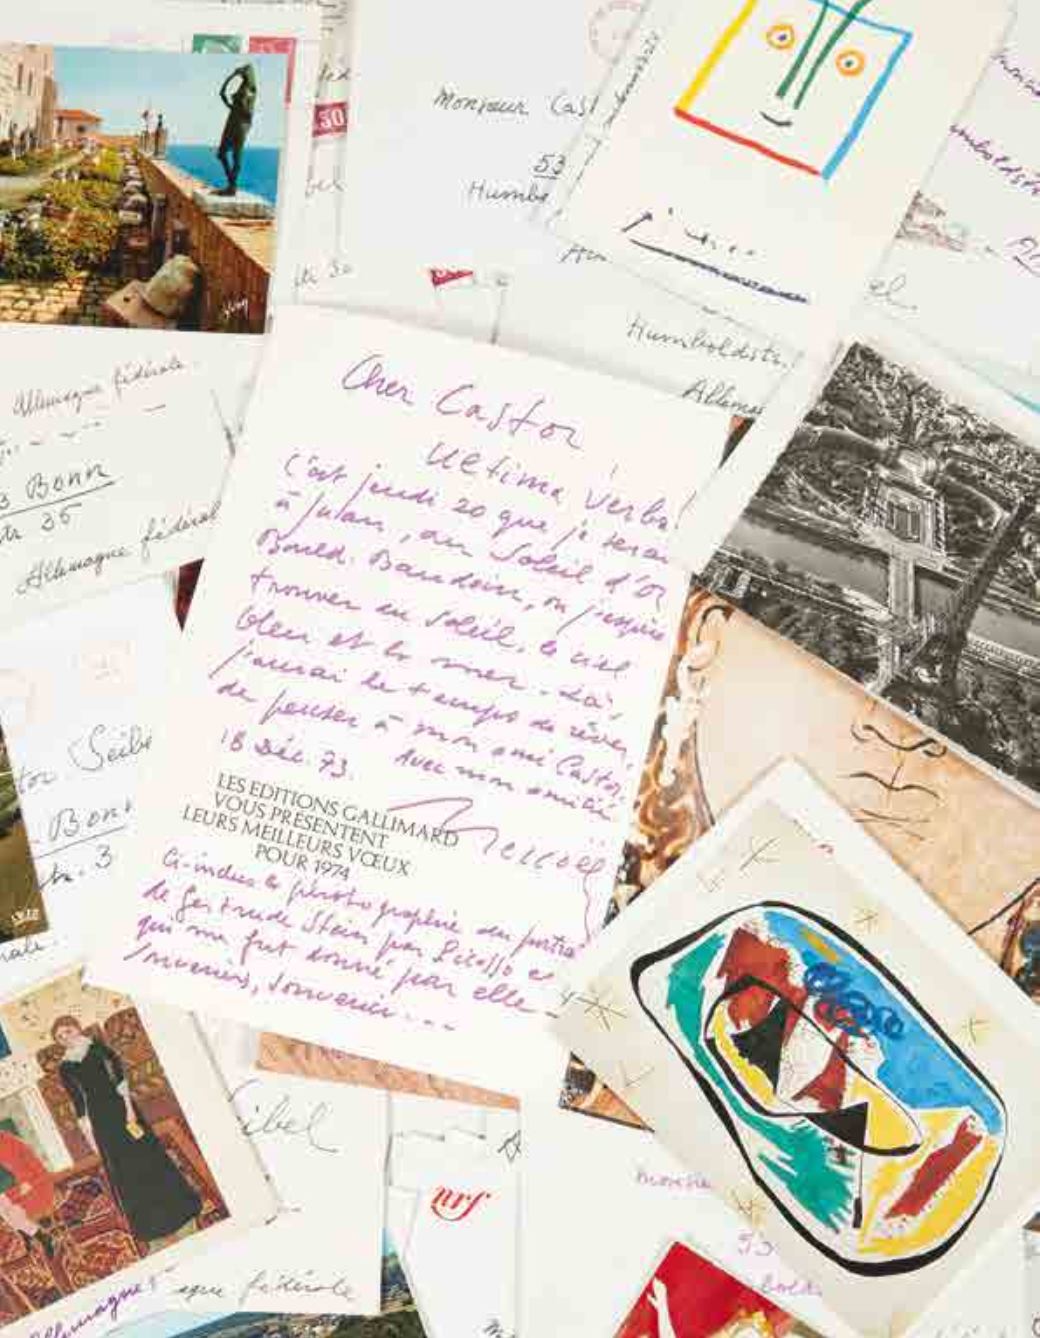 30
Monsieur Cast
53
Humbo
bel
Humboldstr.
Allema
el.
Allemagne fédérale
3 Bonn
str 35
Allemagne fédéral
Cher Castor
Ultima Verba!
C'est jeudi 20 que je serai
à Juan, au Soleil d'Or
Bould. Baudoin, où j'espère
trouver du soleil, le ciel
bleu et la mer. Là,
j'aurai le temps de rêver,
de penser à mon ami Castor.
18 Déc. 73. Avec mon amitié
LES EDITIONS GALLIMARD
VOUS PRÉSENTENT
LEURS MEILLEURS VŒUX
POUR 1974
Ci-inclus la photographie du portrai
de Gertrude Stein par Picasso et
qui me fut donné par elle -
Souvenirs, souvenir...
tor Seibe
Bon
str. 3
eibel
nrf
53
Allemagne
agne fédérale